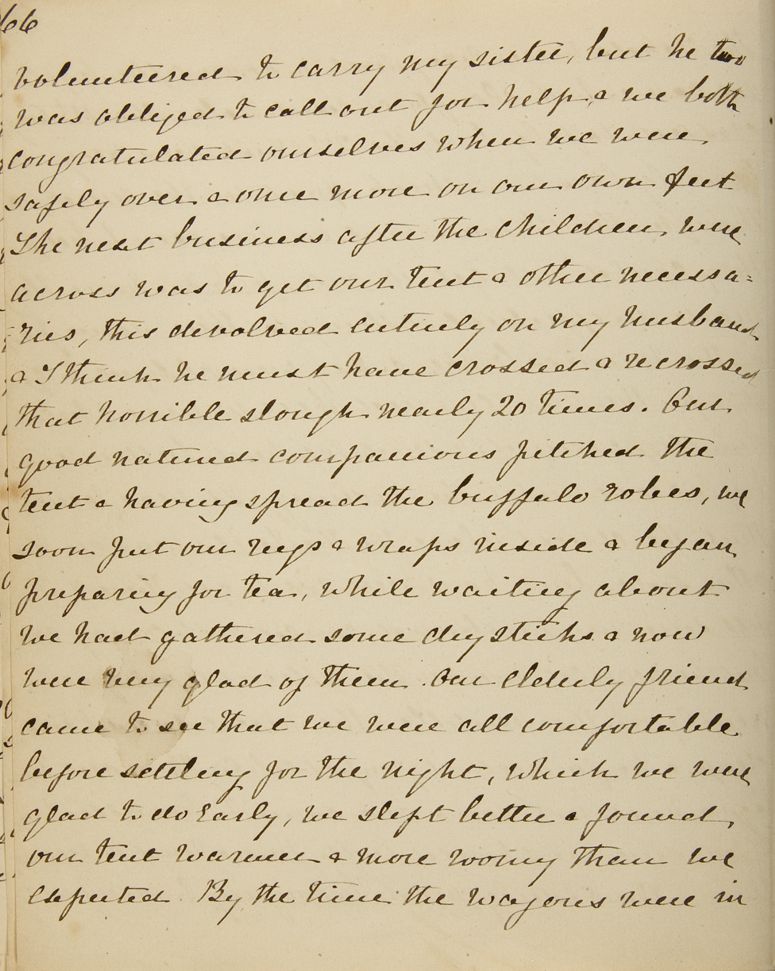 66
volunteered to carry my sister, but he two
was obliged to call out for help, & we both
congratulated ourselves when we were
safely over & once more on our own feet
The next business after the children were
across was to get our tent & other necessa=
ries, this devolved entirely on my husband
& I think he must have crossed & recrossed
that horrible slough nearly 20 times. Our
good natured companions pitched the
tent & having spread the buffalo robes, we
soon put our rugs & wraps inside & began
preparing for tea, while waiting about
we had gathered some dry sticks & now
were very glad of them. Our elderly friend
came to see that we were all comfortable
before settling for the night, which we were
glad to do early, we slept better & found
our tent warmer & more roomy than we
expected. By the time the wagons were in